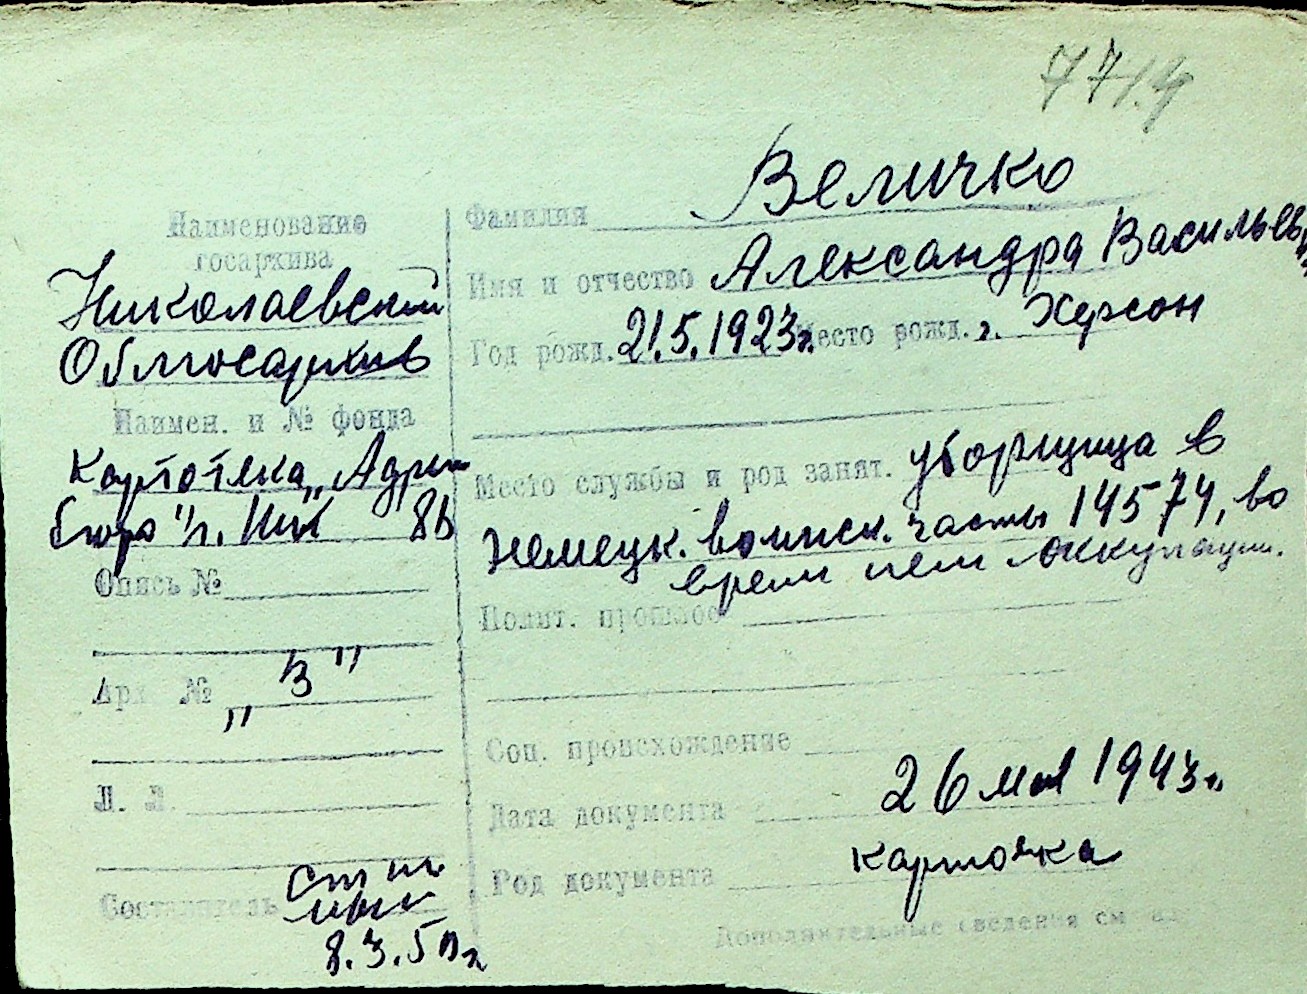 771.4
Наименование
госархива
Николаевский
Облгосархив
Наимен. и № фонда
Картотека "Адрес
бюро" г. Ник
Опись №
Арх. № "З"
Л. Л.
Составитель
8.3.50г
Фамилия Величко
Имя и отчество Александра Васильев
Год рожд. 21.5.1923г. Место рожд. г. Херсон
Место службы и род занят. уборщица в
немецк. воинск. части 14574, во
врем нем оккупации.
Полит. прошлое
Соц. происхождение
Дата документа 26 мая 1943г.
Род документа карточка
Дополнительные сведения см